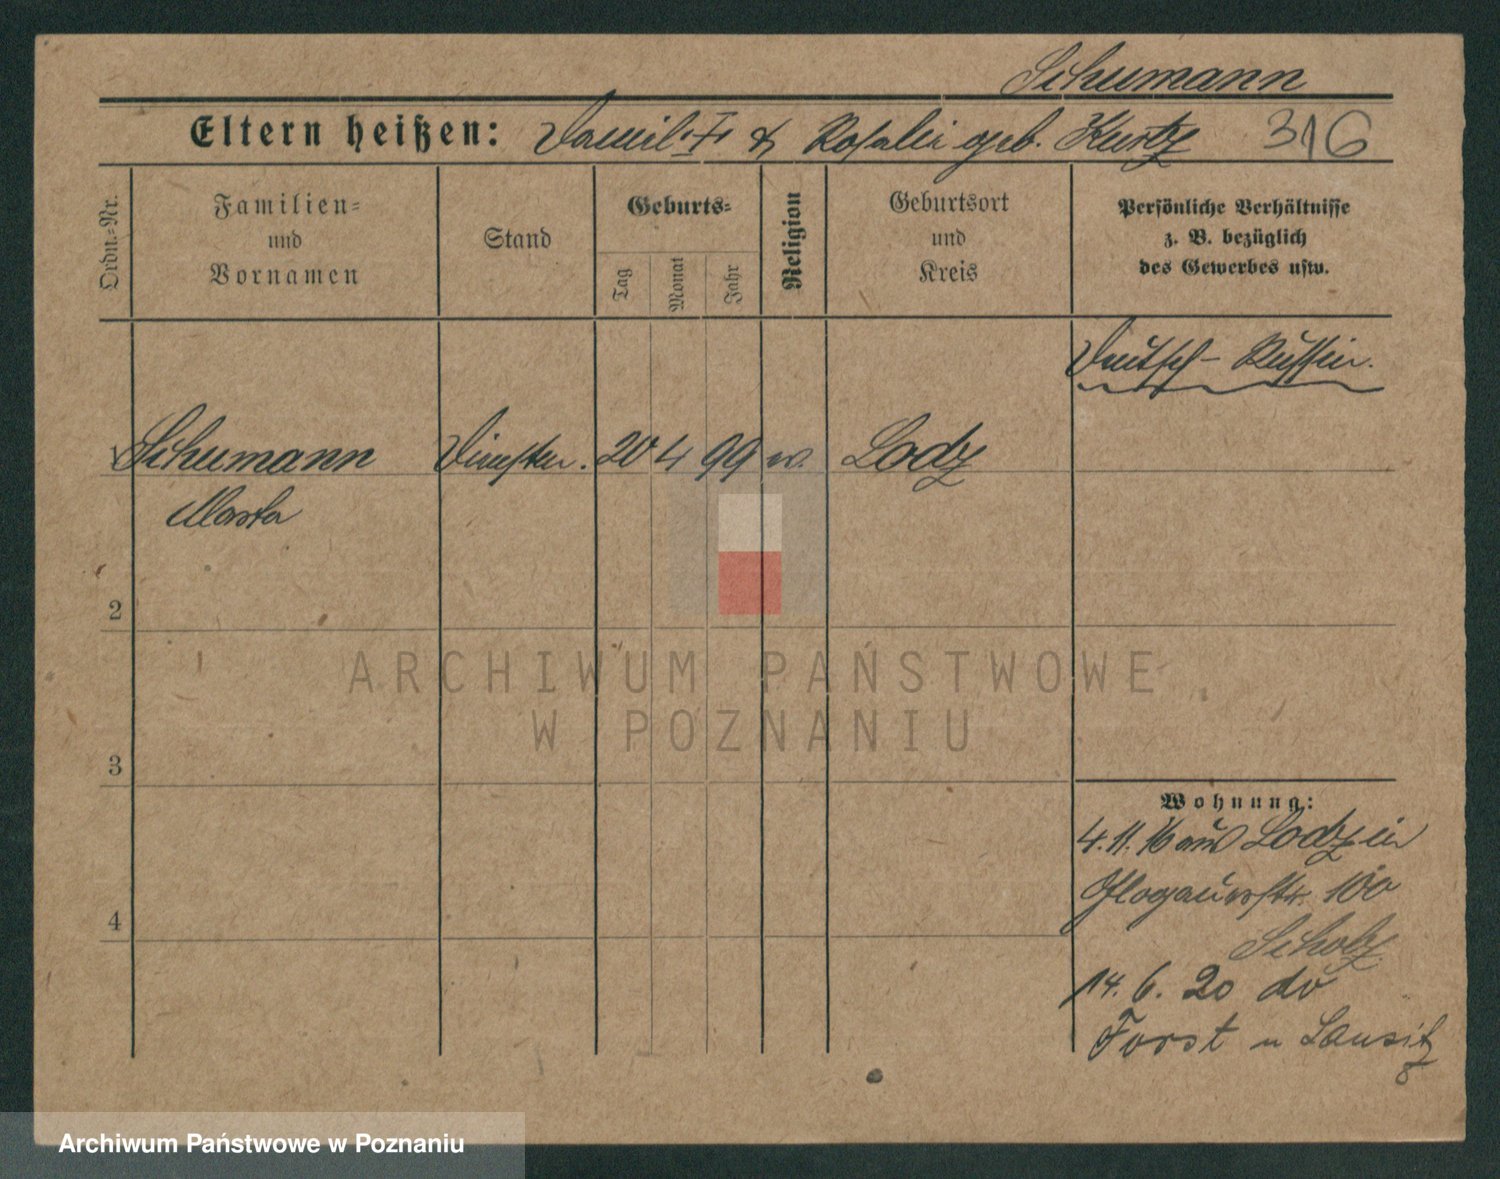 Schumann
Eltern heißen: Daniel † & Rosalie geb. Kurtz 316
Ordn.-Nr.
Familien-
und
Vornamen
Stand
Geburts-
Tag
Monat
Jahr
Religion
Geburtsort
und
Kreis
Persönliche Verhältnisse
z. B. bezüglich
des Gewerbes usw.
Deutsch-Russin.
Schumann
Marta
20 4 99
Lodz
2
3
4
Wohnung:
4.11.16 aus Lodz in
Glogauerstr. 100
Scholz
14.6.20
Forst Lausitz
ARCHIWUM PAŃSTWOWE
W POZNANIU
Archiwum Państwowe w Poznaniu